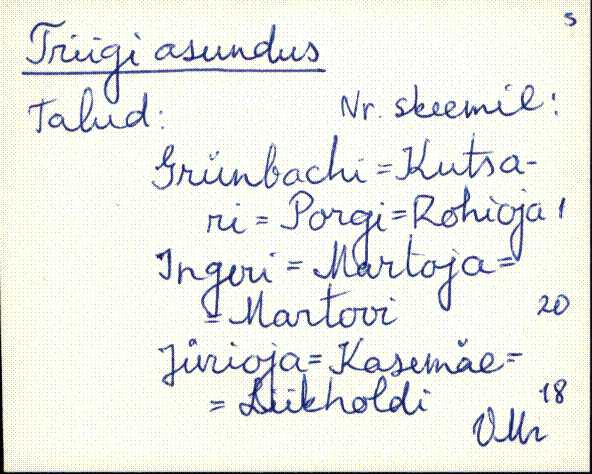 5
Triigi asundus
Talud: Nr. skeemil:
Grünbachi = Kutsa-
ri = Porgi = Rohioja 1
Ingeri = Martoja =
= Martovi 20
Jürioja = Kasemäe =
= Liikholdi 18